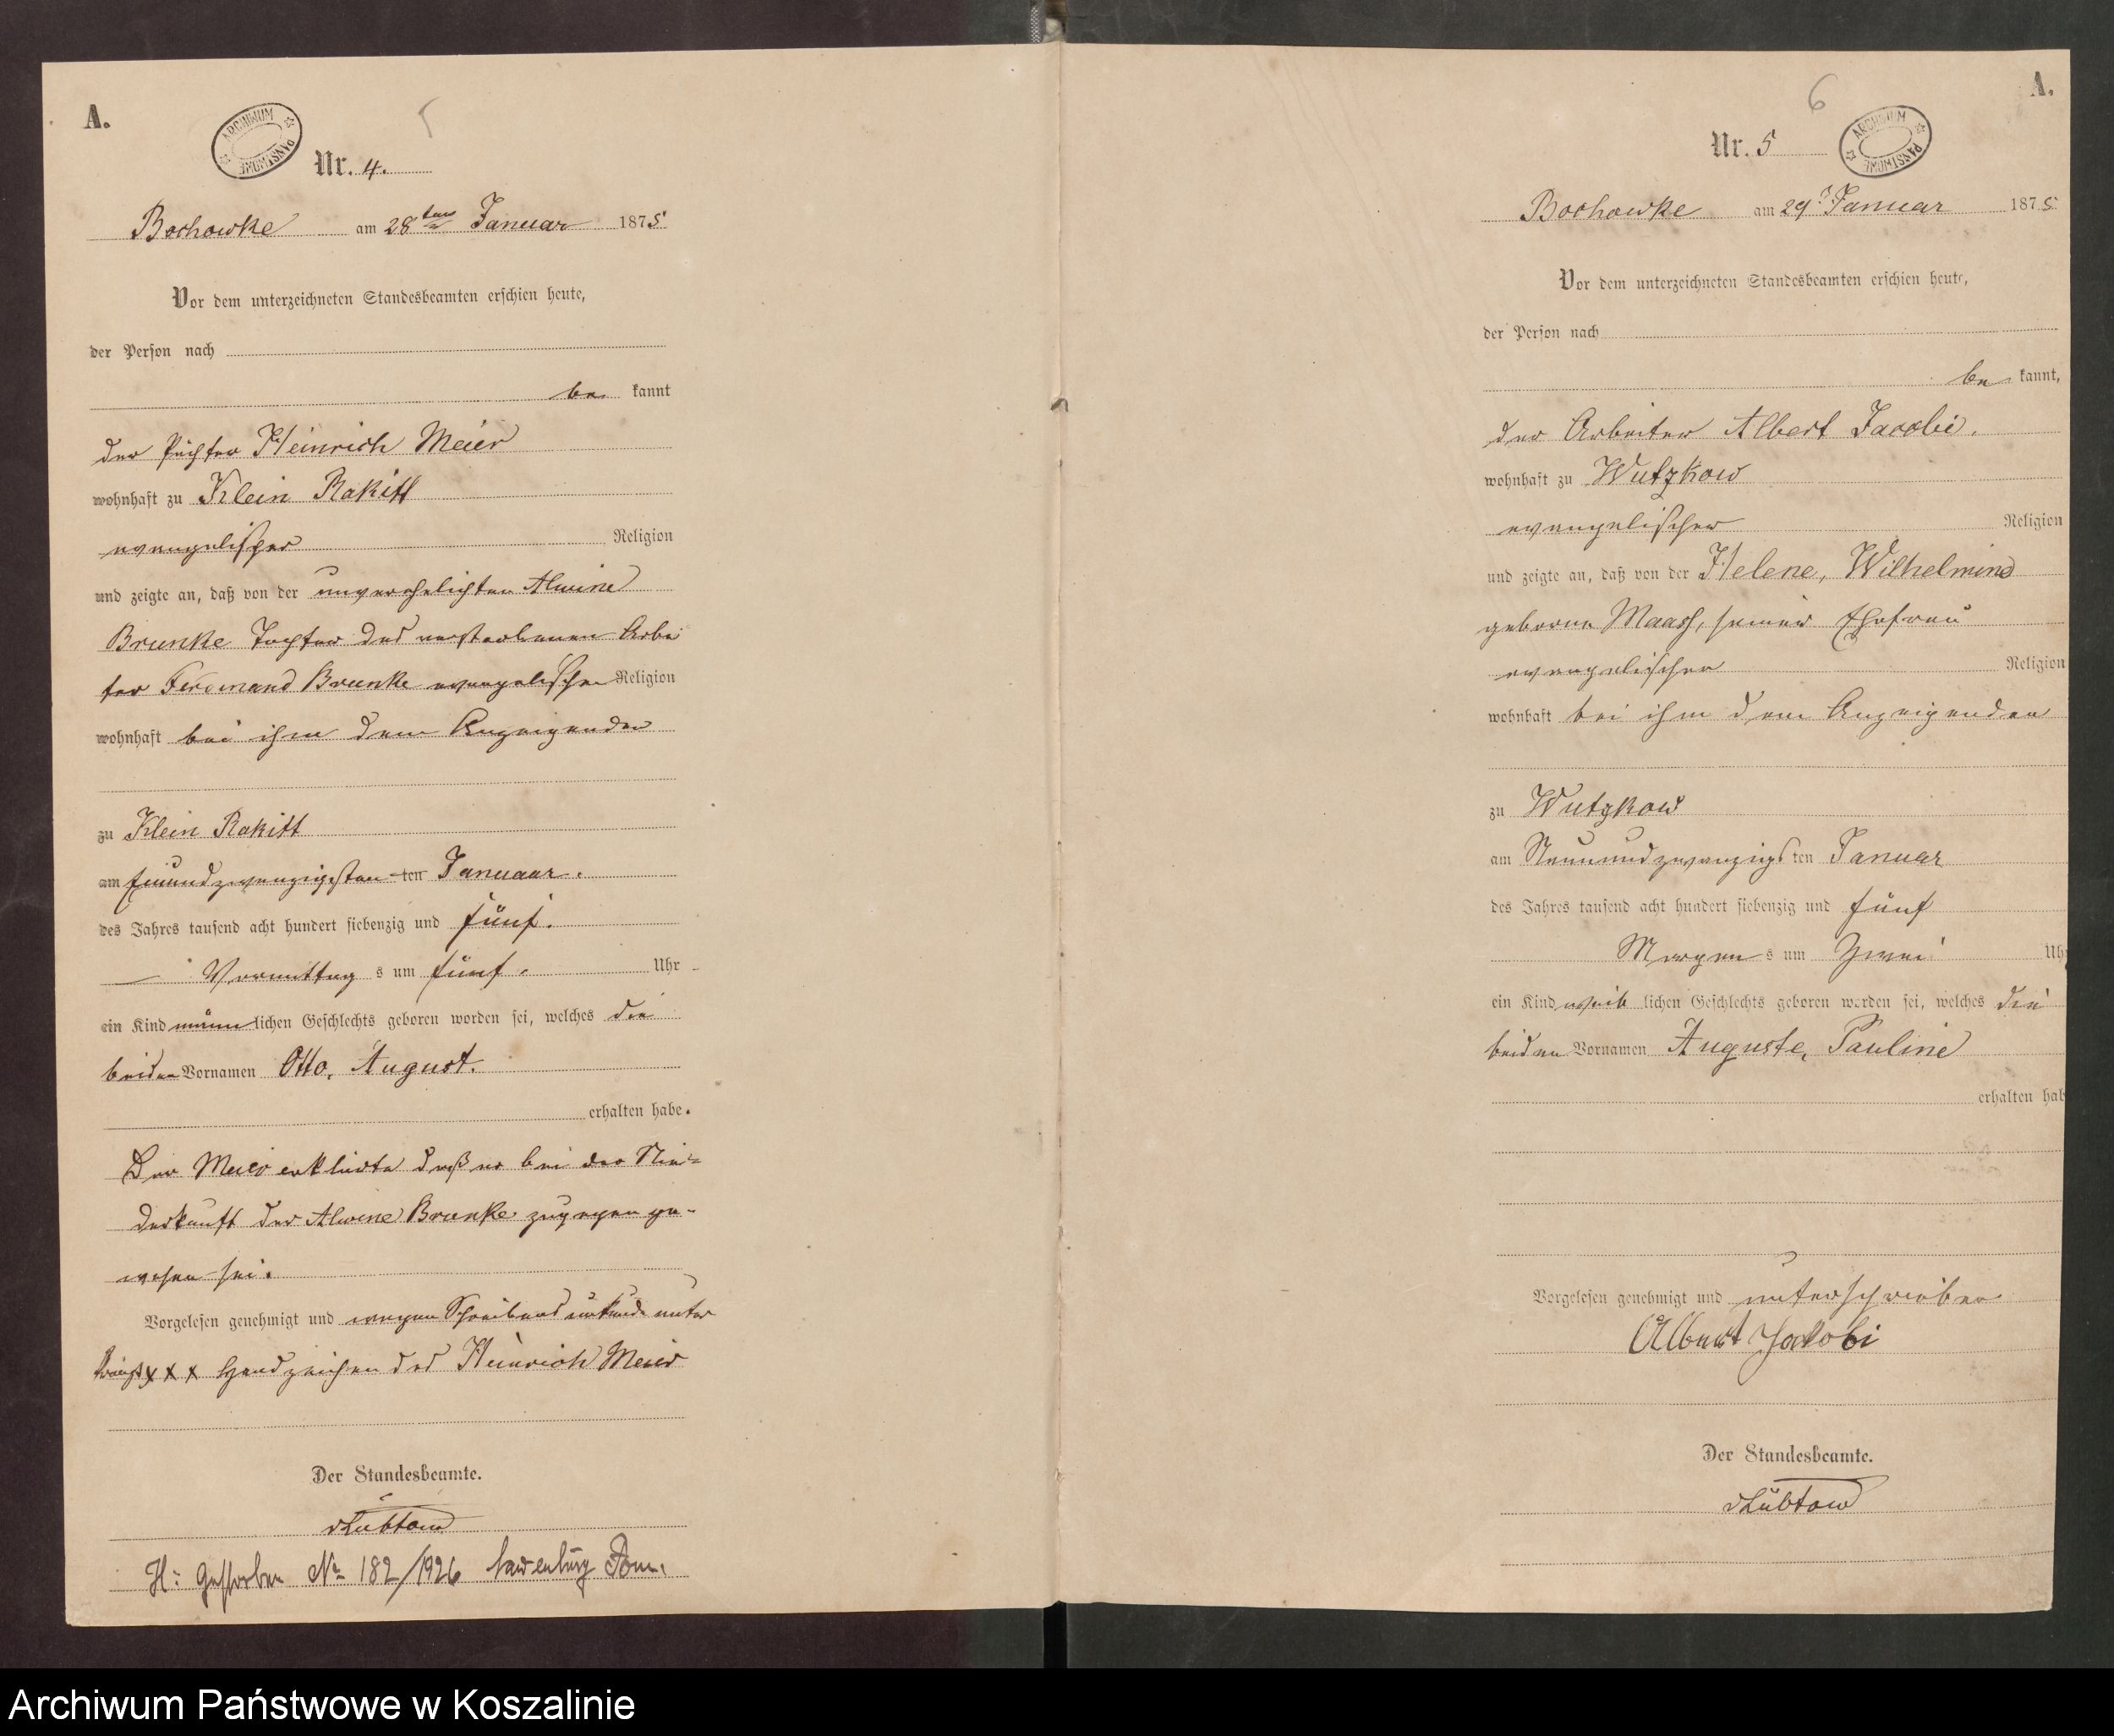 A.
ARCHIWUM PAŃSTWOWE
5
Nr. 4.
Bochowke am 28ten Januar 1875
Vor dem unterzeichneten Standesbeamten erschien heute,
der Person nach
be kannt
der Pächter Heinrich Meier
wohnhaft zu Klein Rakitt
evangelischer Religion
und zeigte an, daß von der unverehelichten Alwine
Brunke Tochter des verstorbenen Arbei
ter Ferdinand Brunke evangelischer Religion
wohnhaft bei ihm dem Anzeigenden
zu Klein Rakitt
am einundzwanzigsten ten Januaar.
des Jahres tausend acht hundert siebenzig und fünf.
Vormittag s um fünf. Uhr
ein Kind männ lichen Geschlechts geboren worden sei, welches die
beiden Vornamen Otto, August.
erhalten habe.
Der Meier erklärte daß er bei der Nie-
derkunft der Alwine Brunke zugegen ge-
wesen sei.
Vorgelesen genehmigt und wegen Schreibens unkunde unter
kreuzt x x x Handzeichen des Heinrich Meier
Der Standesbeamte.
vLübtow
H: Gestorben No 182/1926 Lauenburg Pom.
A.
6
Nr. 5
ARCHIWUM PAŃSTWOWE
Bochowke am 29. Januar 1875
Vor dem unterzeichneten Standesbeamten erschien heute,
der Person nach
be kannt,
der Arbeiter Albert Jacobi.
wohnhaft zu Wutzkow
evangelischer Religion
und zeigte an, daß von der Helene, Wilhelmine
geborne Maass, seiner Ehefrau
evangelischer Religion
wohnhaft bei ihm dem Anzeigenden
zu Wutzkow
am Neunundzwanzigs ten Januar
des Jahres tausend acht hundert siebenzig und fünf
Morgen s um Zwei Uhr
ein Kind weib lichen Geschlechts geboren worden sei, welches die
beiden Vornamen Auguste, Pauline
erhalten hab
Vorgelesen genehmigt und unterschrieben
Albert Jakobi
Der Standesbeamte.
vLübtow
Archiwum Państwowe w Koszalinie